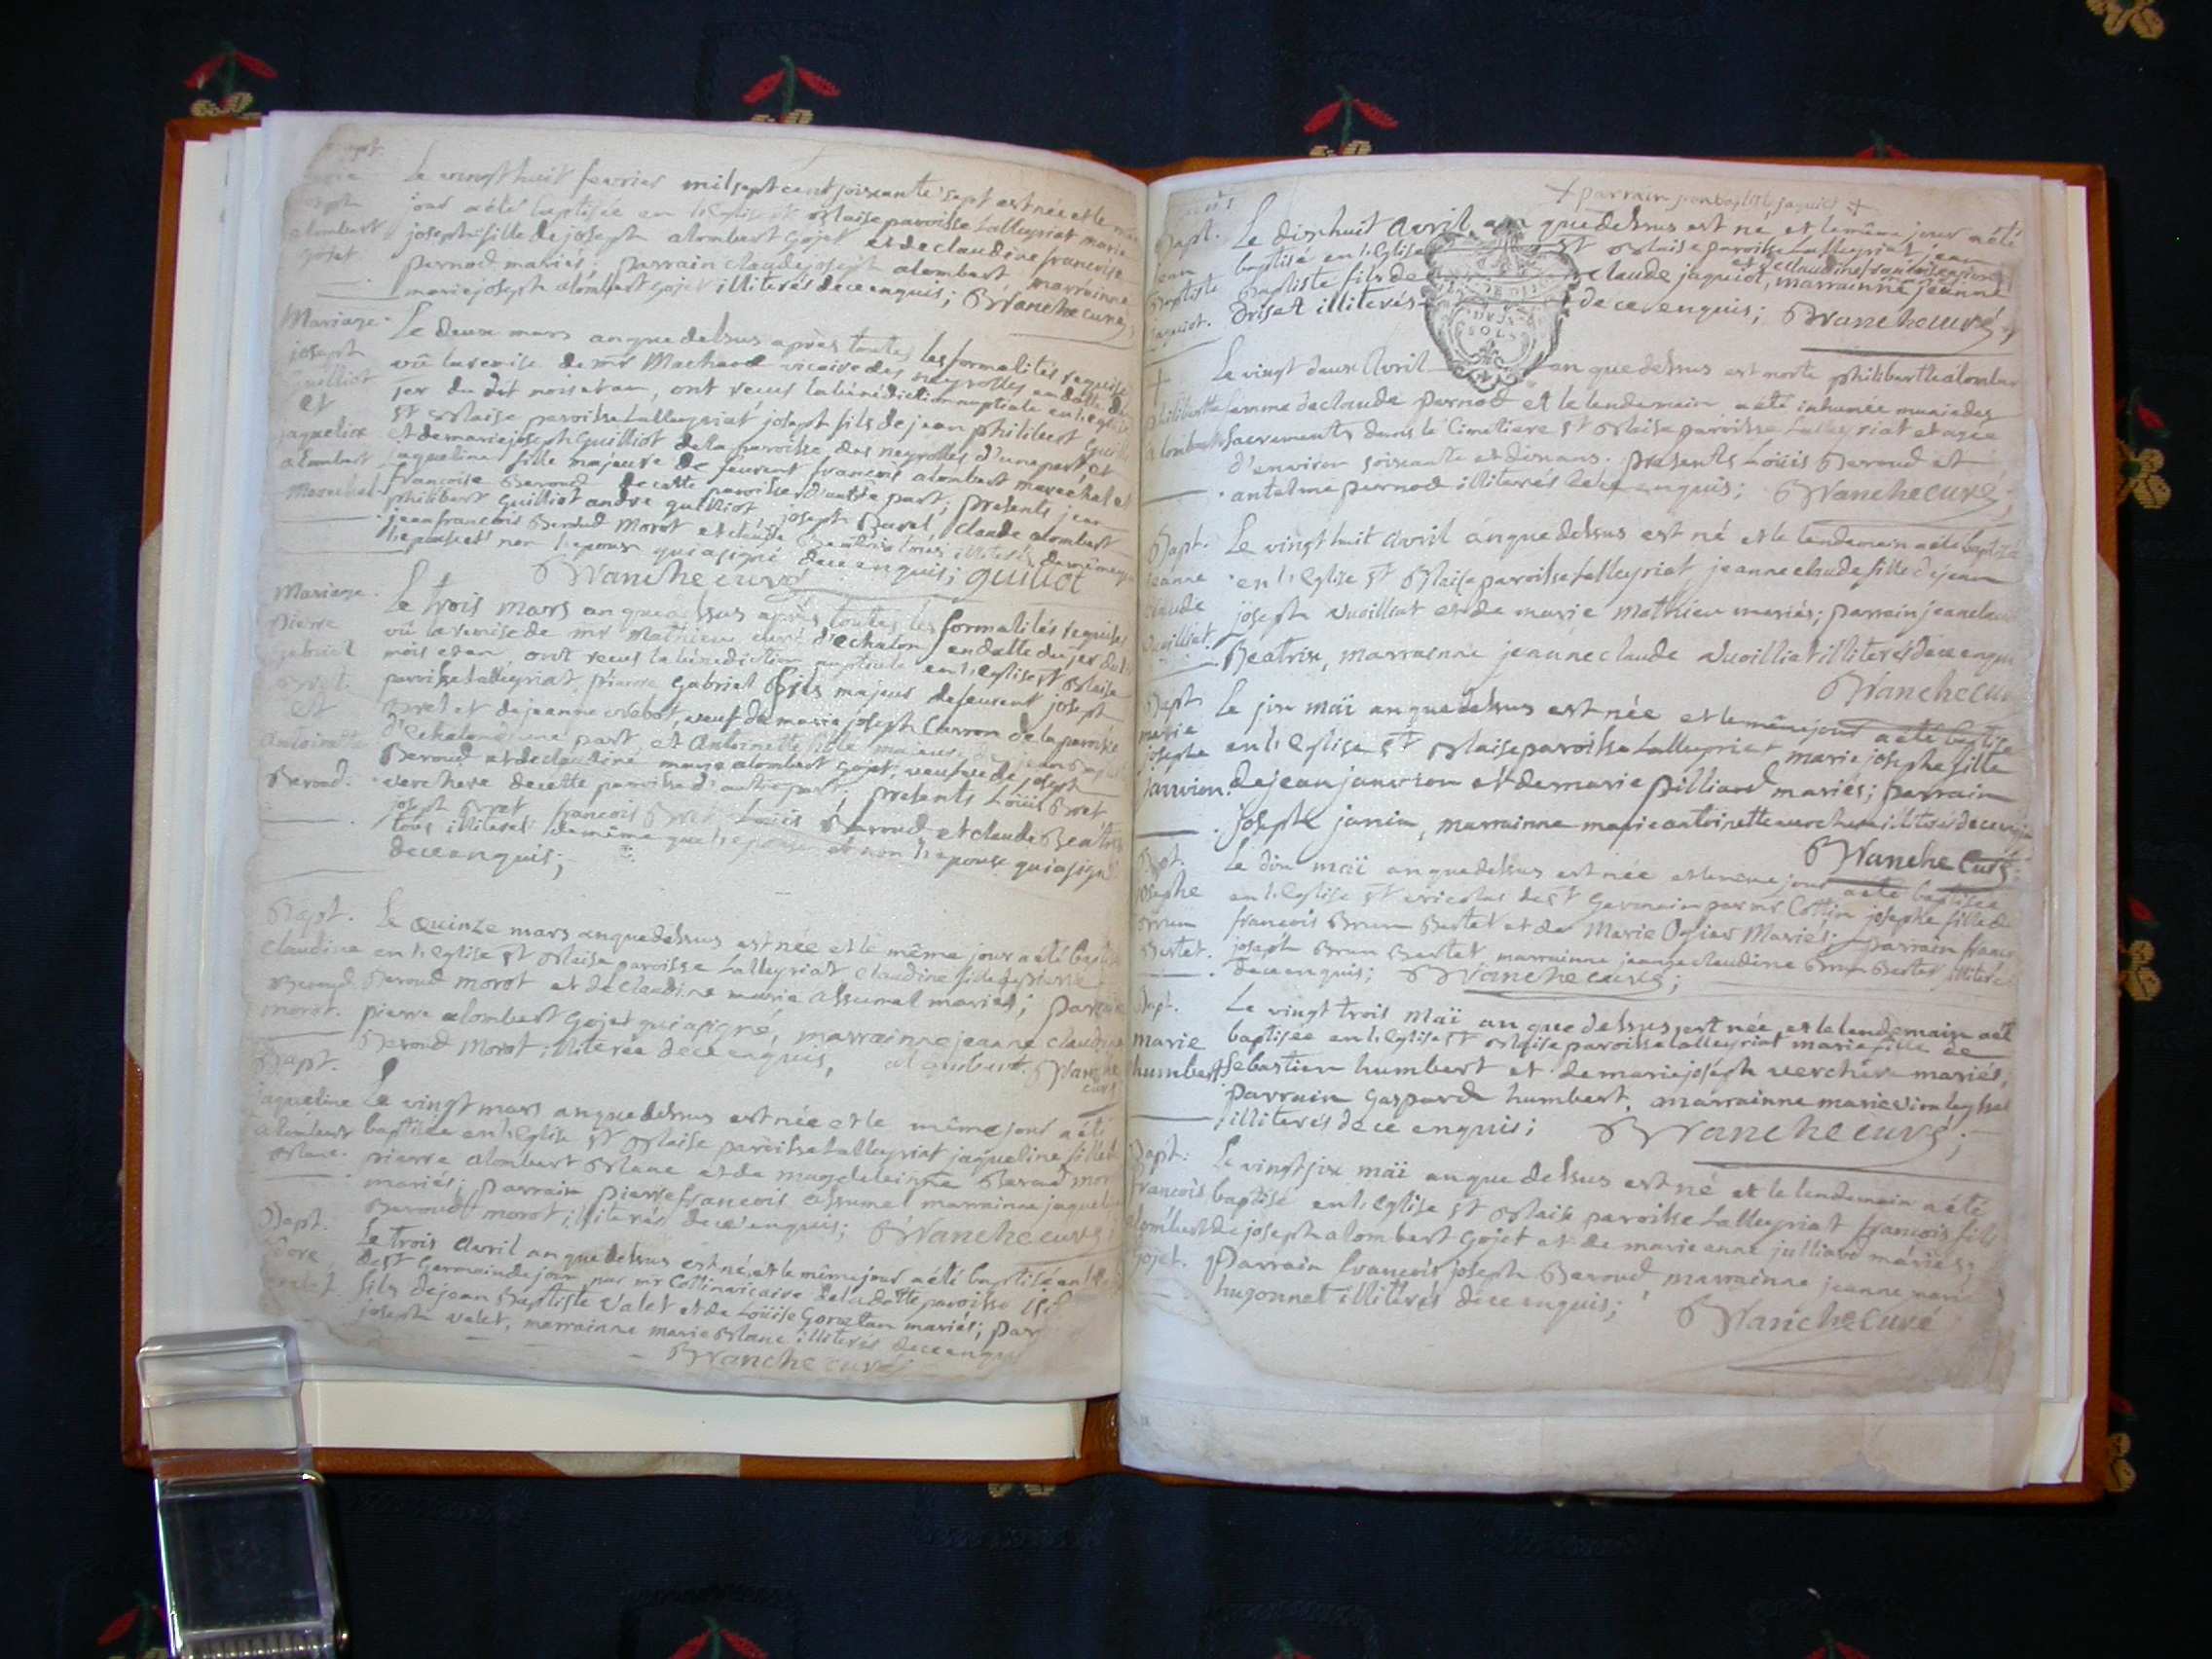 Bapt.
marie
joseph
alombert
gojet
Le vingt huit fevrier mil sept cent soixante sept est née et le même
jour a été baptisée en l'Eglise St Blaise paroisse Lalleyriat marie
joseph fille de joseph alombert gojet et de claudine francoise
pernod mariés; parrain claude joseph alombert marrainne
marie joseph alombert gojet illiterés de ce enquis; Blanche curé;
Mariage.
joseph
guilliot
et
jaqueline
alombert
Marechal
Le deux mars an que dessus après toutes les formalités requises
vû la remise de mr Machard vicaire des neyrolles en datte du
1er du dit mois et an, ont recus la bénédiction nuptiale en l'eglise
St Blaise paroisse Lalleyriat joseph fils de jean philibert guilliot
et de marie joseph guilliot de la paroisse des neyrolles d'une part, et
jaqueline fille majeure de feu francois alombert marechal et
francoise Beroud de cette paroisse d'autre part; presents jean
philibert guilliot andre guilliot, joseph Buret claude alombert
jean francois Beroud Morot et claude Beatrix tous illiterés de même que
l'epouse et non l'epoux qui a signé de ce enquis; guilliot
Blanche curé
Mariage.
pierre
gabriel
Bret.
et
antoinette
Beroud.
Le trois mars an que dessus après toutes les formalités requises
vû la remise de mr Mathieu curé d'Echalon en datte du 1er du d.
mois et an, ont recus la bénédiction nuptiale en l'eglise St Blaise
paroisse Lalleyriat, pierre gabriel fils majeur de feu joseph
Bret et de jeanne Nebot, veuf de marie joseph Carron de la paroisse
d'Echalon d'une part, et antoinette fille majeure de jean Baptiste
Beroud et de claudine marie alombert gojet, veufve de joseph
verchere de cette paroisse d'autre part; presents Loüis Bret
joseph Bret francois Bret Loüis Beroud et claude Beatrix
tous illiterés de même que l'epoux et non l'epouse qui a signé
de ce enquis;
Bapt.
claudine
Beroud
morot.
Le quinze mars an que dessus est née et le même jour a été baptisée
en l'Eglise St Blaise paroisse Lalleyriat claudine fille de pierre
Beroud morot et de claudine marie assumel mariés; parrain
pierre alombert gojet qui a signé, marrainne jeanne claudine
Beroud Morot illiterée de ce enquis, alombert. Blanche
curé
Bapt.
jaqueline
alombert
Blanc.
Le vingt mars an que dessus est née et le même jour a été
baptisée en l'Eglise St Blaise paroisse Lalleyriat jaqueline fille de
pierre alombert Blanc et de magdeleinne Beroud morot
mariés; parrain pierre francois assumel marrainne jaqueline
Beroud morot; illiterés de ce enquis; Blanche curé;
Bapt.
valet.
Le trois avril an que dessus est né, et le même jour a été baptisé en l'Eglise
de St Germain de joux par mr Collin vicaire de la ditte paroisse
fils de jean Baptiste Valet et de Loüise Gonetan mariés; par
joseph valet, marrainne marie Blanc illiterés de ce enquis
Blanche curé;
+ parrain jean baptiste jaquiot +
Bapt.
jean
Baptiste
jaquiot.
Le dixhuit avril an que dessus est né et le même jour a été
baptisé en l'Eglise St Blaise paroisse Lalleyriat, jean
et de claudine francoise pernod
Baptiste fils de claude jaquiot, marrainne jeanne
Briset illiterés de ce enquis; Blanche curé;
+
philiberthe
alombert
Le vingt deux avril an que dessus est morte philiberthe alombert
femme de claude pernod et le lendemain a été inhumée munie des
sacrements dans le Cimetiere St Blaise paroisse Lalleyriat et agée
d'environ soixante et dix ans. presents Loüis Beroud et
antelme pernod illiterés de ce enquis; Blanche curé;
Bapt.
jeanne
claude
Vuilliat.
Le vingt huit avril an que dessus est né et le lendemain a été baptisé
en l'Eglise St Blaise paroisse Lalleyriat jeanne claude fille de jean
joseph Vuilliat et de marie Mathieu mariés; parrain jean claude
Beatrix, marrainne jeanne claude Vuilliat illiterés de ce enquis
Blanche curé
Bapt.
marie
josephe
janvion.
Le six maï an que dessus est née et le même jour a été baptisée
en l'Eglise St Blaise paroisse Lalleyriat, marie josephe fille
de jean janvion et de marie pilliard mariés; parrain
joseph janin, marrainne marie antoinette verchere illiterés de ce enquis
Blanche curé;
Bapt.
josephe
Brun
Bertet.
Le dix maï an que dessus est née et le même jour a été baptisée
en l'Eglise St nicolas de St Germain par mr Collin josephe fille de
francois Brun Bertet et de Marie Ogier Mariés; parrain francois
joseph Brun Bertet, marrainne jeanne claudine Brun Bertet illiterés
de ce enquis; Blanche curé;
Bapt.
marie
humbert
Le vingt trois maï an que dessus est née, et le lendemain a été
baptisée en l'Eglise St Blaise paroisse Lalleyriat marie fille de
sebastien humbert et de marie joseph verchere mariés,
parrain Gaspard humbert, marrainne marie
illiterés de ce enquis; Blanche curé;
Bapt.
francois
alombert
gojet.
Le vingt six maï an que dessus est né et le lendemain a été
baptisé en l'Eglise St Blaise paroisse Lalleyriat francois fils
de joseph alombert gojet et de marie anne julliard mariés;
Parrain francois joseph Beroud, marrainne jeanne marie
hugonnet illiterés de ce enquis; Blanche curé